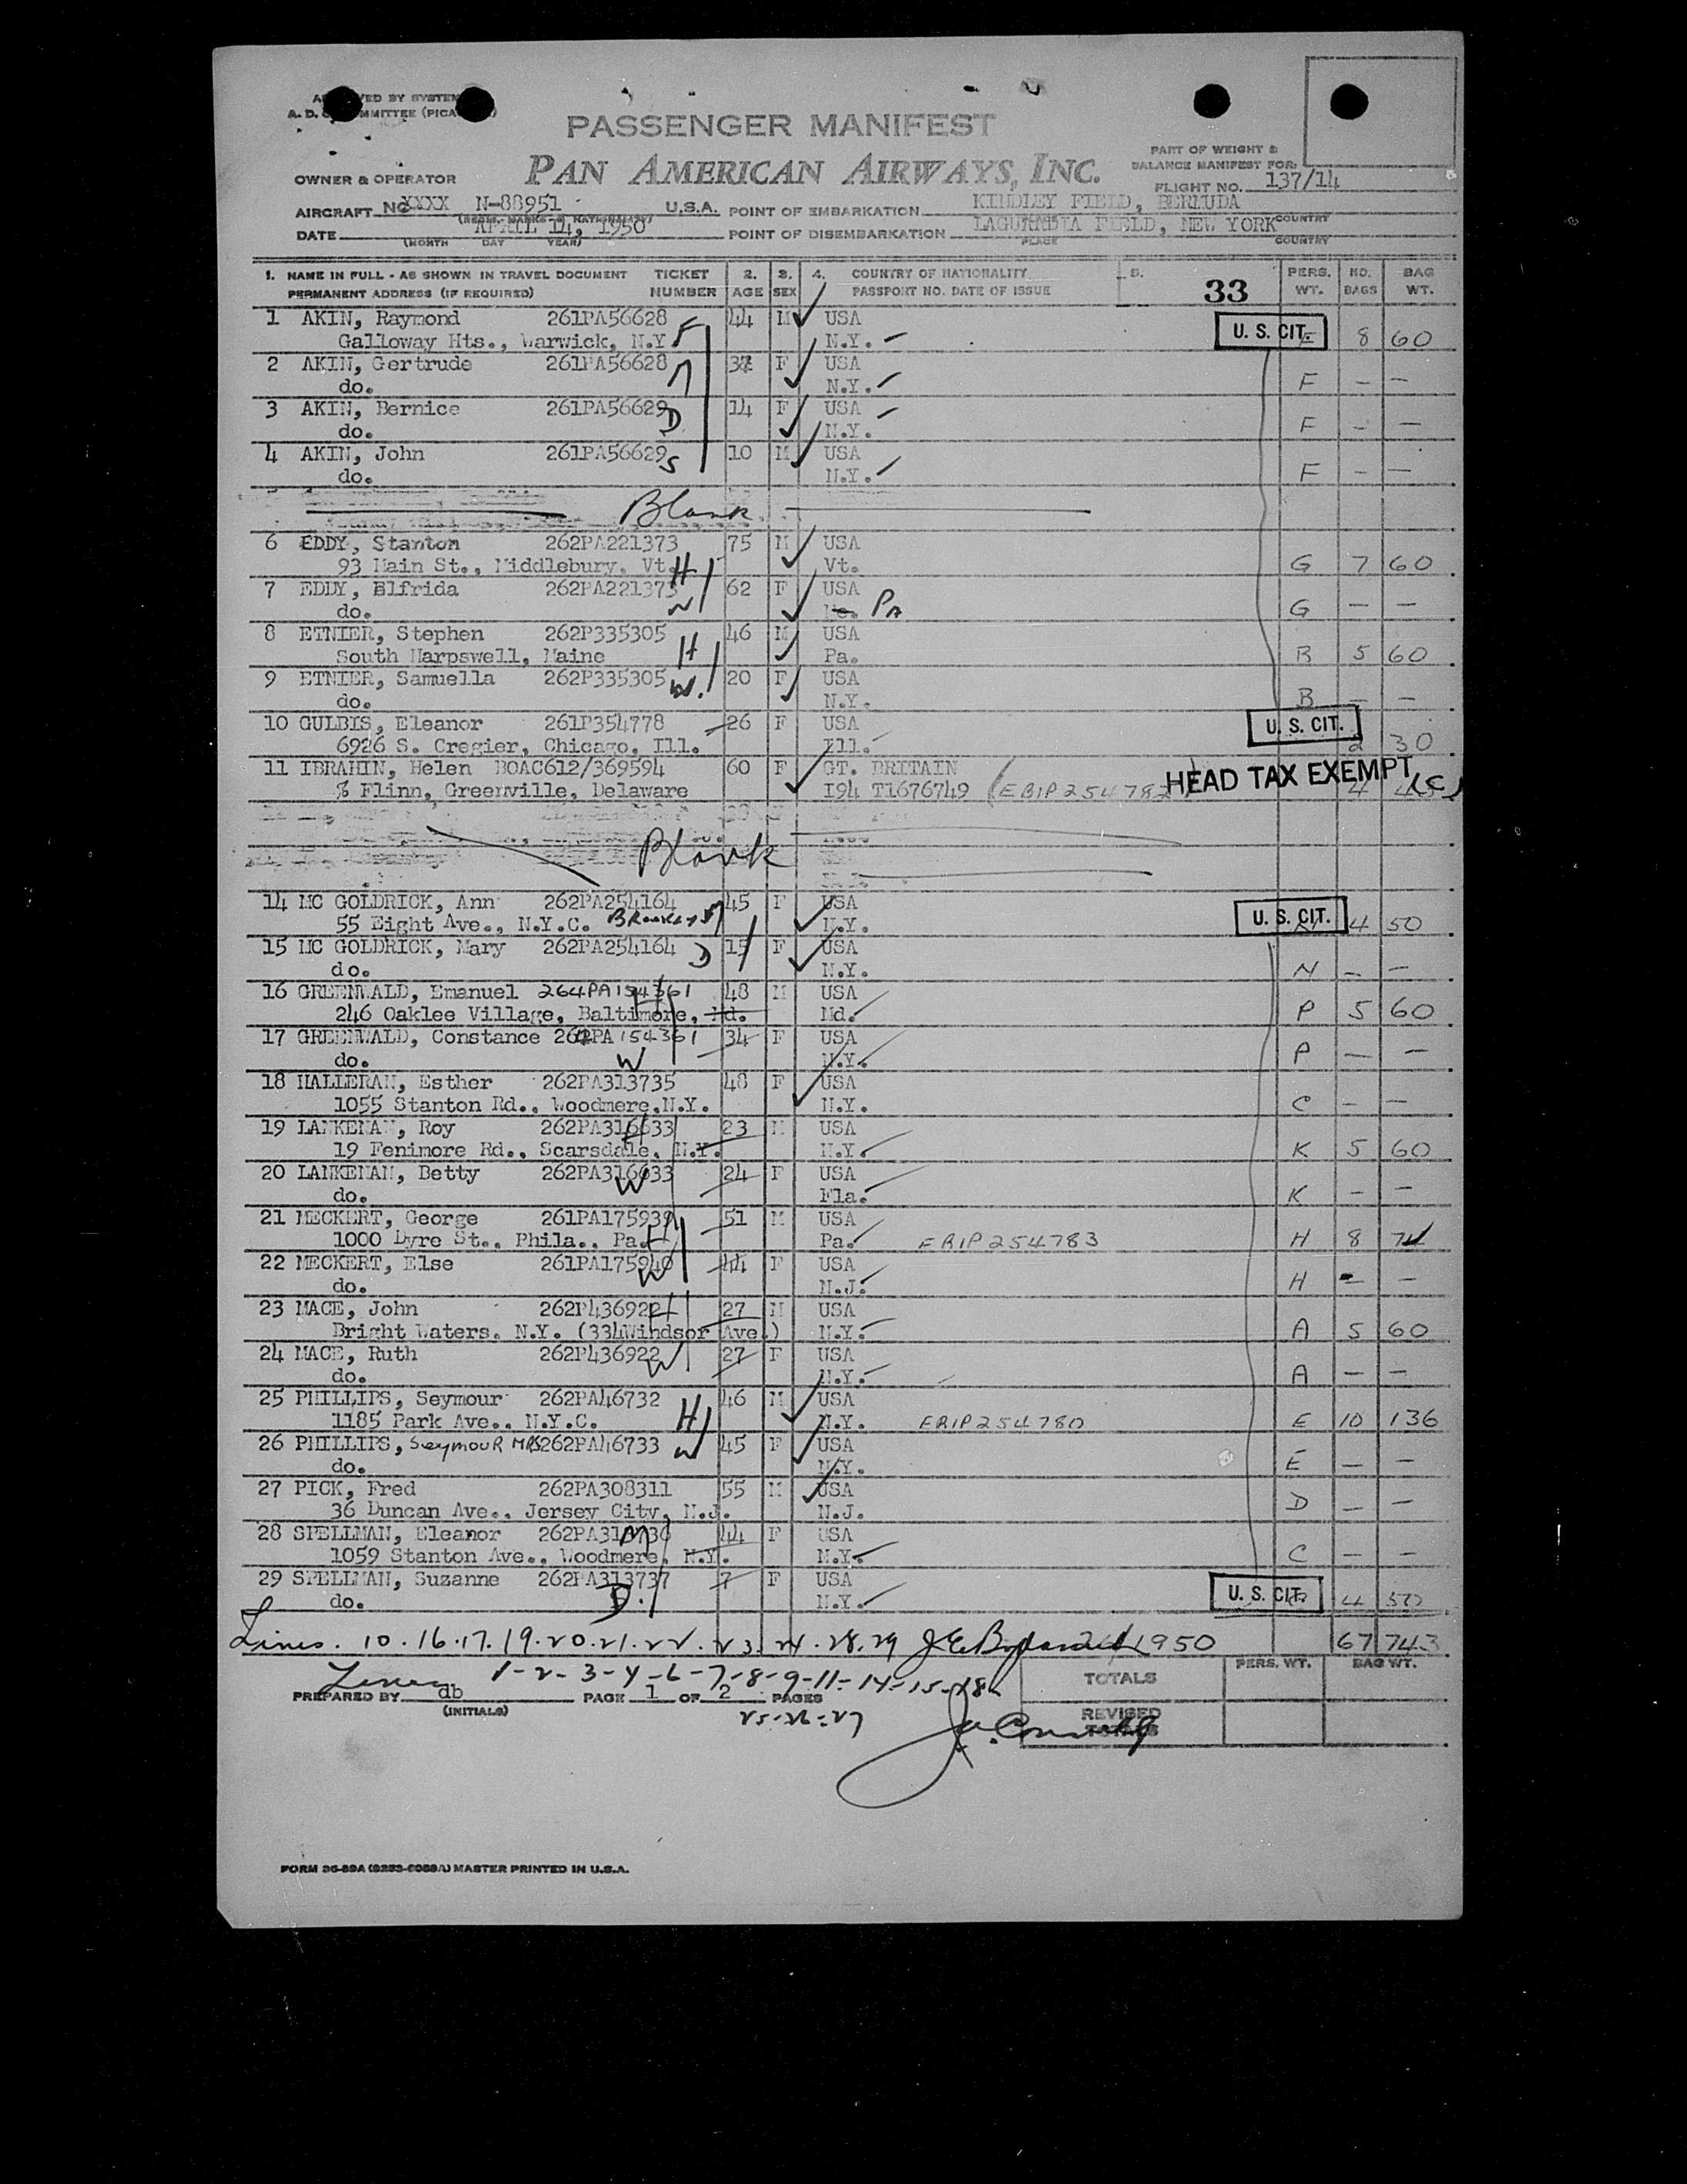 PASSENGER MANIFEST
PAN AMERICAN AIRWAYS, INC.
PART OF WEIGHT &
BALANCE MANIFEST FOR:
OWNER & OPERATOR
FLIGHT NO. 137/14
AIRCRAFT NO XXXX N-88951 U.S.A. POINT OF EMBARKATION KINDLEY FIELD, BERMUDA
DATE APRIL 14, 1950 POINT OF DISEMBARKATION LAGUARDIA FIELD, NEW YORK COUNTRY
(MONTH DAY YEAR) PLACE COUNTRY
1. NAME IN FULL - AS SHOWN IN TRAVEL DOCUMENT TICKET 2. 3. 4. COUNTRY OF NATIONALITY 5. PERS. NO. BAG
PERMANENT ADDRESS (IF REQUIRED) NUMBER AGE SEX PASSPORT NO. DATE OF ISSUE 33 WT. BAGS WT.
1 AKIN, Raymond 261PA56628 44 M USA U. S. CIT.
Galloway Hts., Warwick, N.Y F N.Y. 8 60
2 AKIN, Gertrude 261PA56628 F USA
do. M N.Y. F — —
3 AKIN, Bernice 261PA56629 14 F USA
do. D N.Y. F - —
4 AKIN, John 261PA56629 10 M USA
do. S N.Y. F — —
Blank
6 EDDY, Stanton 262PA221373 75 M USA
93 Main St., Middlebury, Vt. H Vt. G 7 60
7 EDDY, Elfrida 262PA221373 62 F USA
do. W PA G — —
8 ETNIER, Stephen 262P335305 46 M USA
South Harpswell, Maine H Pa. B 5 60
9 ETNIER, Samuella 262P335305 20 F USA
do. W. N.Y. B — —
10 GULBIS, Eleanor 261P354778 26 F USA U. S. CIT.
6926 S. Cregier, Chicago, Ill. Ill. 2 30
11 IBRAHIN, Helen BOAC612/369594 60 F GT. BRITAIN HEAD TAX EXEMPT (C)
% Flinn, Greenville, Delaware I94 T1676749 (EBIP254782)
Blank
14 MC GOLDRICK, Ann 262PA254164 45 F USA U. S. CIT.
55 Eight Ave., N.Y.C. BROOKLYN M N.Y. 4 50
15 MC GOLDRICK, Mary 262PA254164 D 15 F USA
do. N.Y. N — —
16 GREENWALD, Emanuel 264PA154361 48 M USA
246 Oaklee Village, Baltimore, Md. H Md. P 5 60
17 GREENWALD, Constance 264PA154361 34 F USA
do. W N.Y. P — —
18 HALLERAN, Esther 262PA313735 48 F USA
1055 Stanton Rd., Woodmere, N.Y. N.Y. C — —
19 LANKENAN, Roy 262PA316633 23 M USA
19 Fenimore Rd., Scarsdale, N.Y. H N.Y. K 5 60
20 LANKENAN, Betty 262PA316633 24 F USA
do. W Fla. K — —
21 MECKERT, George 261PA175939 51 M USA
1000 Dyre St., Phila., Pa. H Pa. EBIP254783 H 8 74
22 MECKERT, Else 261PA175940 44 F USA
do. W N.J. H — —
23 MACE, John 262P436922 H 27 M USA
Bright Waters, N.Y. (334Windsor Ave.) N.Y. A 5 60
24 MACE, Ruth 262P436922 W 27 F USA
do. N.Y. A — —
25 PHILLIPS, Seymour 262PA46732 46 M USA
1185 Park Ave., N.Y.C. H N.Y. EBIP254780 E 10 136
26 PHILLIPS, Seymour MRS 262PA46733 W 45 F USA
do. N.Y. E — —
27 PICK, Fred 262PA308311 55 M USA
36 Duncan Ave., Jersey City, N.J. N.J. D — —
28 SPELLMAN, Eleanor M 44 F USA
1059 Stanton Ave., Woodmere, N.Y. N.Y. C — —
29 SPELLMAN, Suzanne 262PA313737 7 F USA U. S. CIT.
do. D. N.Y. 4
Lines. 10.16.17.19.20.21.22.23.24.28.29 1950 67 743
Lines 1-2-3-4-6-7-8-9-11-14-15-18
PREPARED BY db PAGE 1 OF 2 PAGES TOTALS PERS. WT. BAG WT.
(INITIALS) 25-26-27 REVISED TOTALS
FORM MASTER PRINTED IN U.S.A.